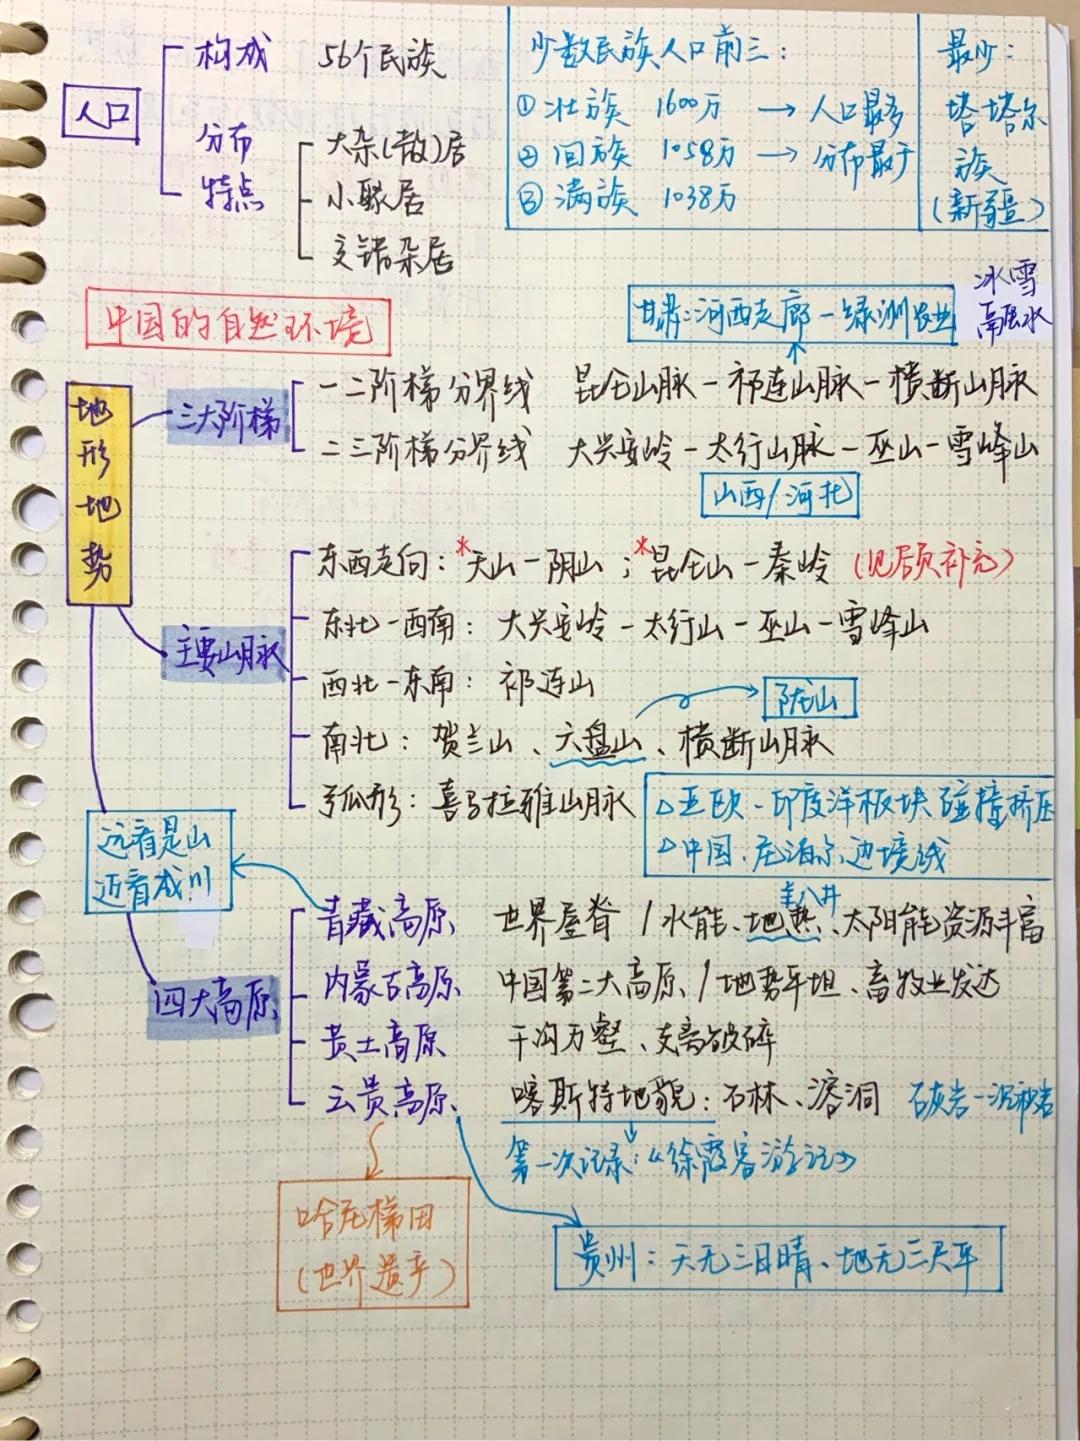 人口
构成 56个民族
分布
特点
大杂(散)居
小聚居
交错杂居
少数民族人口前三：
①壮族 1600万 → 人口最多
②回族 1058万 → 分布最广
③满族 1038万
最少：
塔塔尔
族
(新疆)
中国的自然环境
甘肃：河西走廊－绿洲农业
冰雪
高压水
地形地势
三大阶梯
一二阶梯分界线 昆仑山脉－祁连山脉－横断山脉
二三阶梯分界线 大兴安岭－太行山脉－巫山－雪峰山
山西/河北
主要山脉
东西走向：*天山－阴山；*昆仑山－秦岭 (见后页补充)
东北－西南：大兴安岭－太行山－巫山－雪峰山
西北－东南：祁连山
陇山
南北：贺兰山、六盘山、横断山脉
弓弧形：喜马拉雅山脉
△亚欧－印度洋板块碰撞挤压
△中国、尼泊尔边境线
远看是山
近看成川
四大高原
羊八井
青藏高原 世界屋脊 / 水能、地热、太阳能资源丰富
内蒙古高原 中国第二大高原 / 地势平坦、畜牧业发达
黄土高原 千沟万壑、支离破碎
云贵高原 喀斯特地貌：石林、溶洞 石灰岩－沉积岩
第一次记录：《徐霞客游记》
哈尼梯田
(世界遗产)
贵州：天无三日晴、地无三尺平